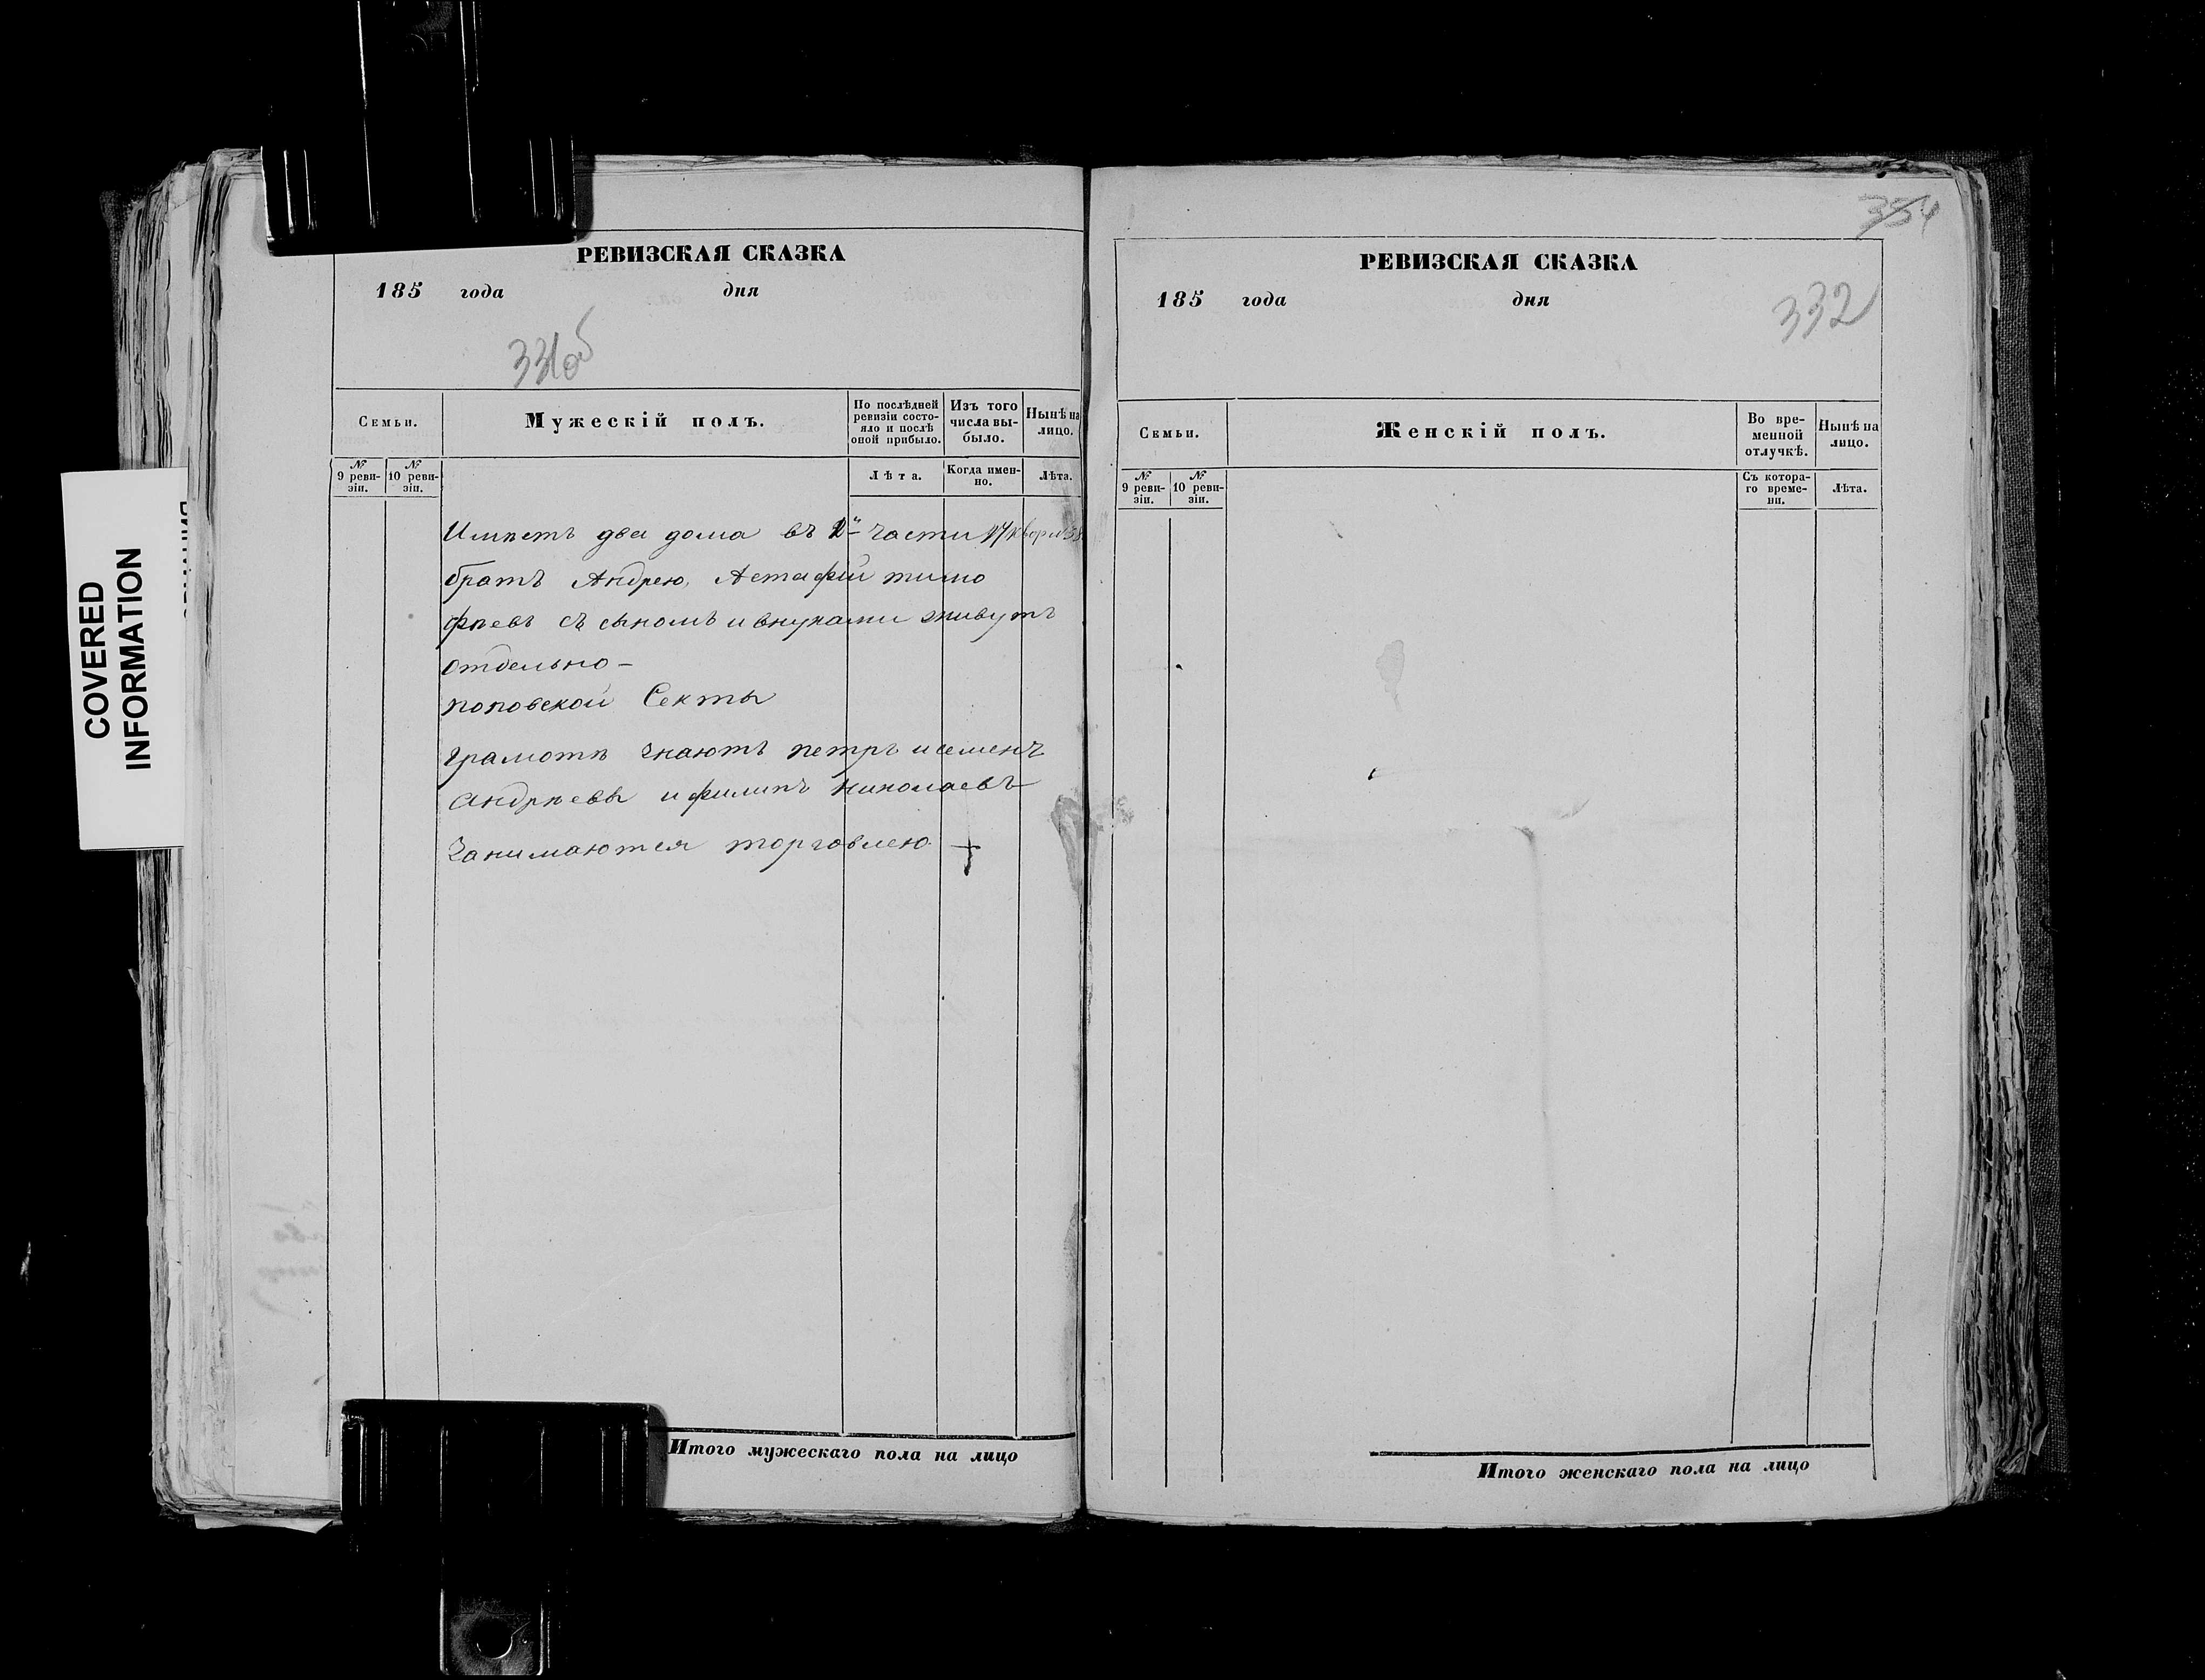 COVERED
INFORMATION
РЕВИЗСКАЯ СКАЗКА
185 года дня
331об
Семьи.
Мужескій полъ.
По послѣдней ревизіи состояло и послѣ оной прибыло.
Изъ того числа выбыло.
Нынѣ на лицо.
№ 9 ревизіи.
№ 10 ревизіи.
Лѣта.
Когда именно.
Лѣта.
Имѣетъ два дома въ 2й части
братъ Андрею, Астафій тимо
фѣевъ съ сыномъ и внуками живутъ
отдельно –
поповской Секты
грамотѣ знаютъ петръ и семенъ
Андрѣевы и филипъ николаевъ
Занимаются торговлею
Итого мужескаго пола на лицо
354
РЕВИЗСКАЯ СКАЗКА
185 года дня
332
Семьи.
Женскій полъ.
Во временной отлучкѣ.
Нынѣ на лицо.
№ 9 ревизіи.
№ 10 ревизіи.
Съ котораго времени.
Лѣта.
Итого женскаго пола на лицо